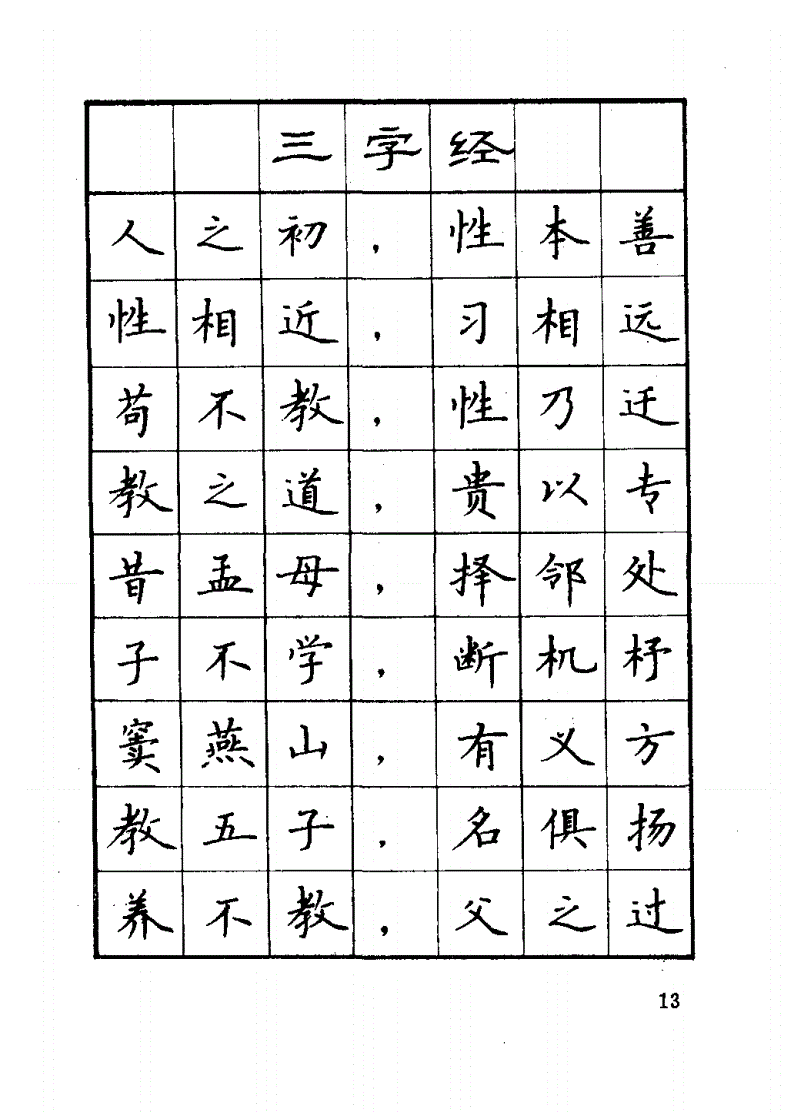 三字经
人之初，性本善
性相近，习相远
苟不教，性乃迁
教之道，贵以专
昔孟母，择邻处
子不学，断机杼
窦燕山，有义方
教五子，名俱扬
养不教，父之过
13